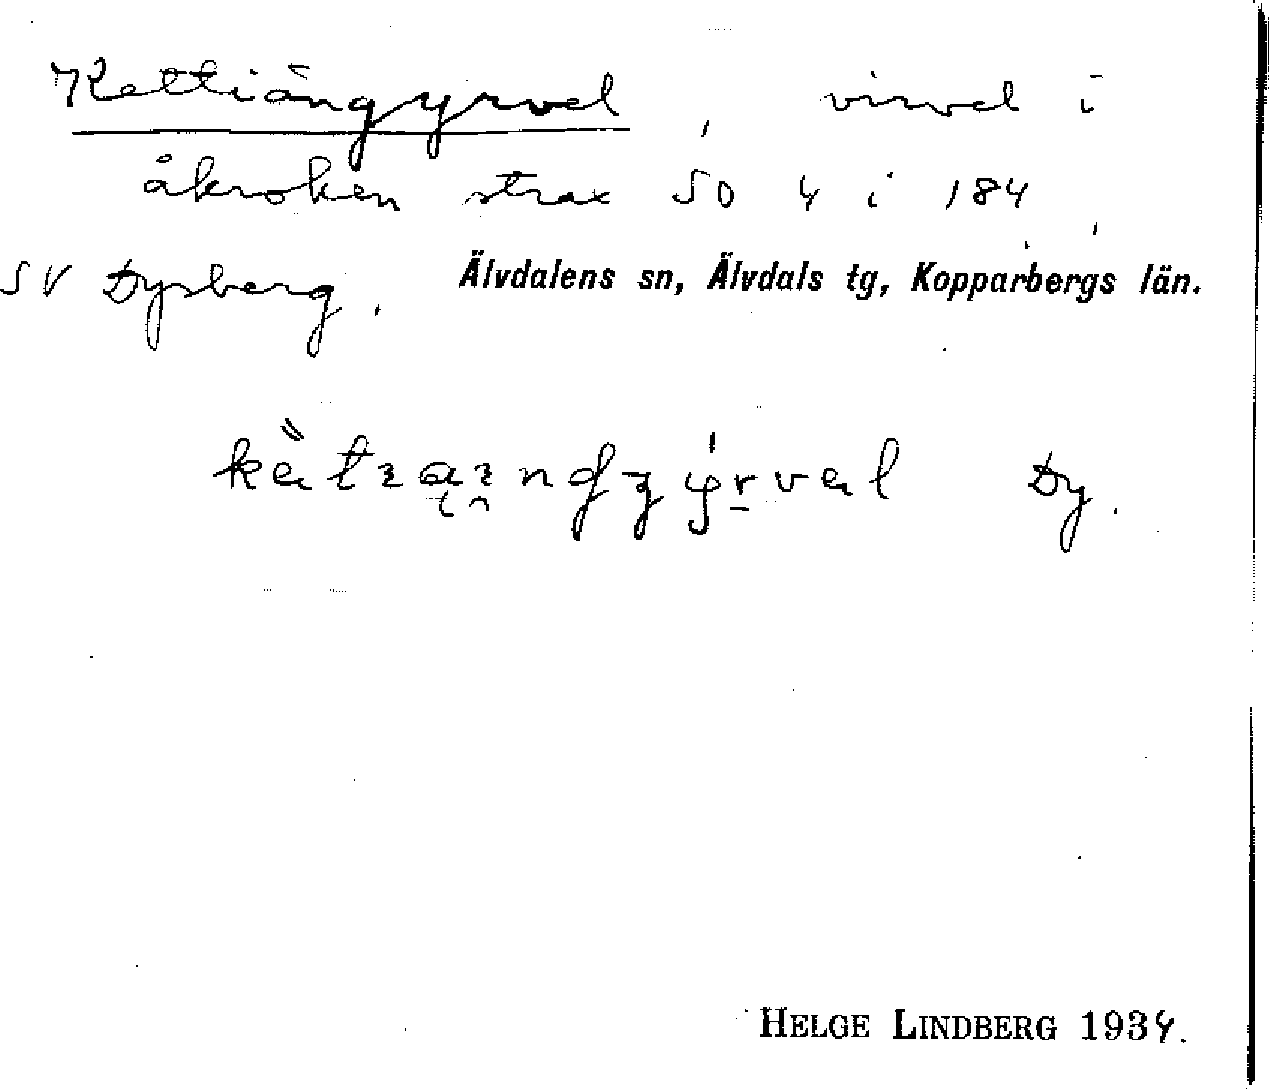 Kettiängyrvel, virvel i
åkroken strax SO 4 i 184
SV Dysberg. Älvdalens sn, Älvdals tg, Kopparbergs län.
Dy.
HELGE LINDBERG 1934.